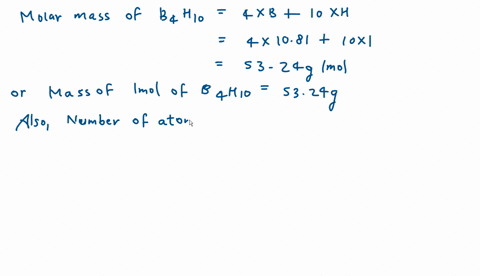 Molar mass of B4H10 = 4XB + 10XH
= 4X10.81 + 10X1
= 53-24g/mol
or Mass of 1mol of B4H10 = 53.24g
Also, Number of atom